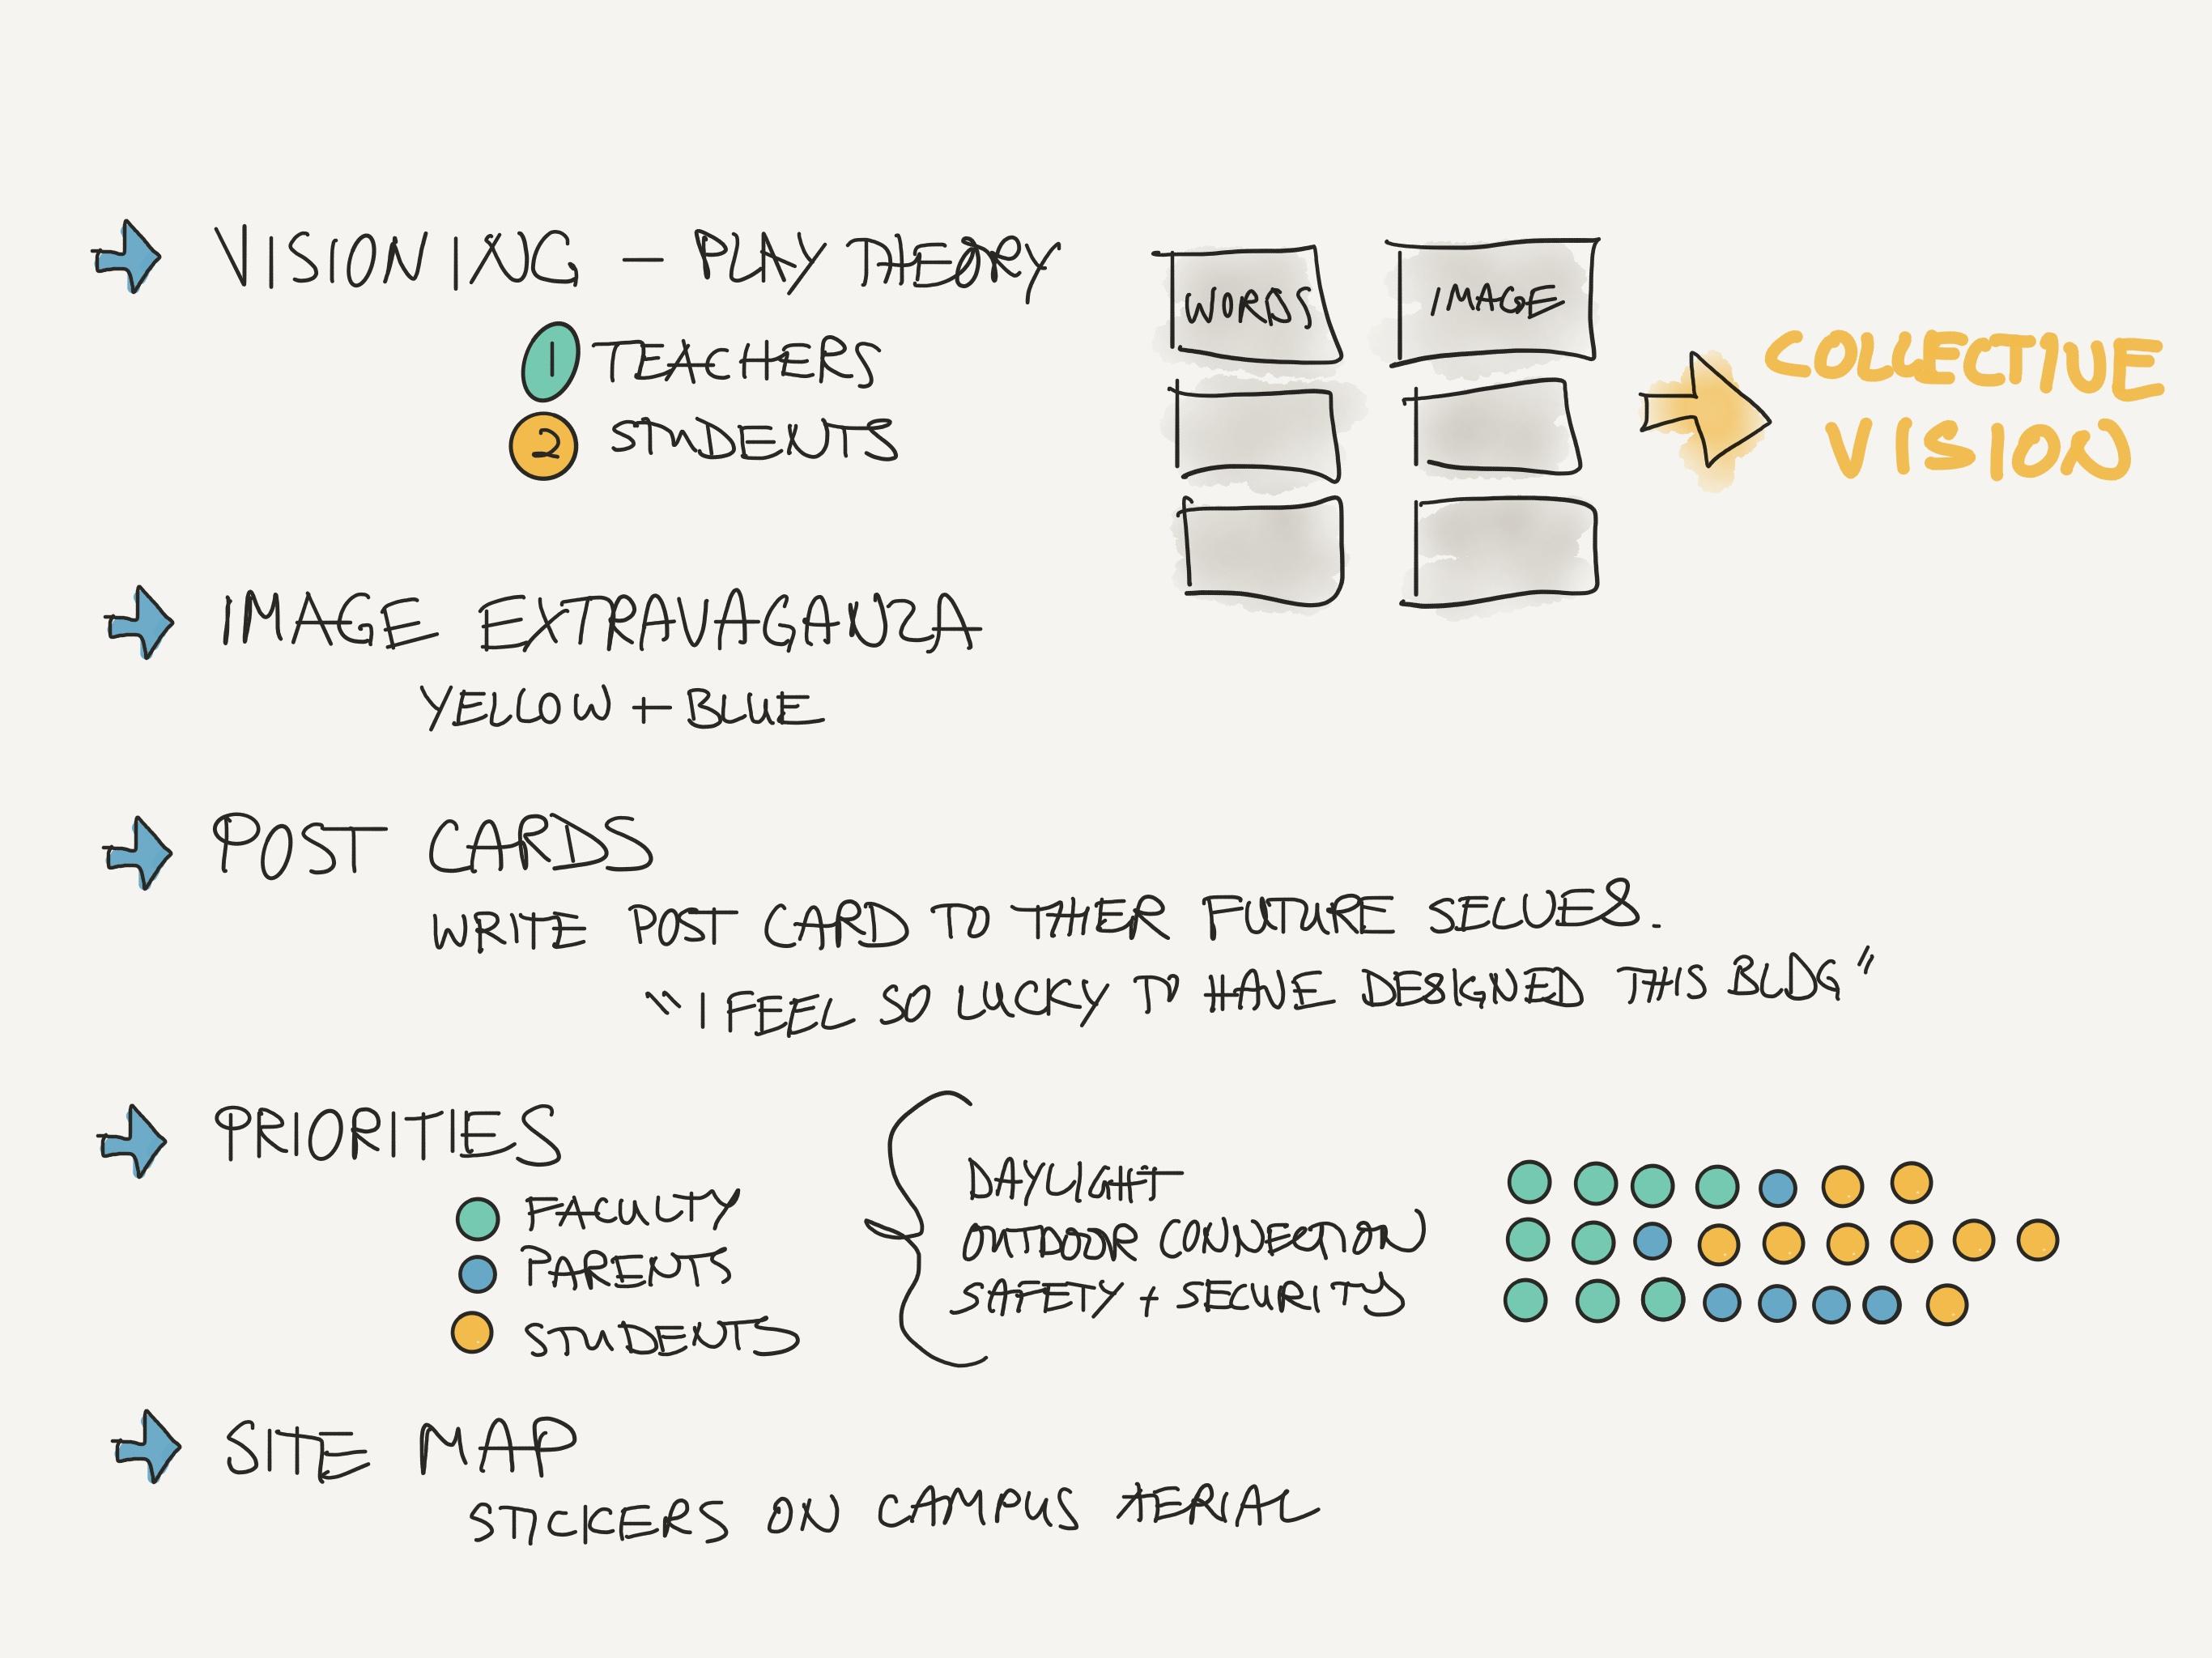 VISIONING — PLAY THEORY
1 TEACHERS
2 STUDENTS
WORDS
IMAGE
COLLECTIVE
VISION
IMAGE EXTRAVAGANZA
YELLOW + BLUE
POST CARDS
WRITE POST CARD TO THIER FUTURE SELVES.
"I FEEL SO LUCKY TO HAVE DESIGNED THIS BLDG"
PRIORITIES
FACULTY
PARENTS
STUDENTS
DAYLIGHT
OUTDOOR CONNECTION
SAFETY + SECURITY
SITE MAP
STICKERS ON CAMPUS AERIAL